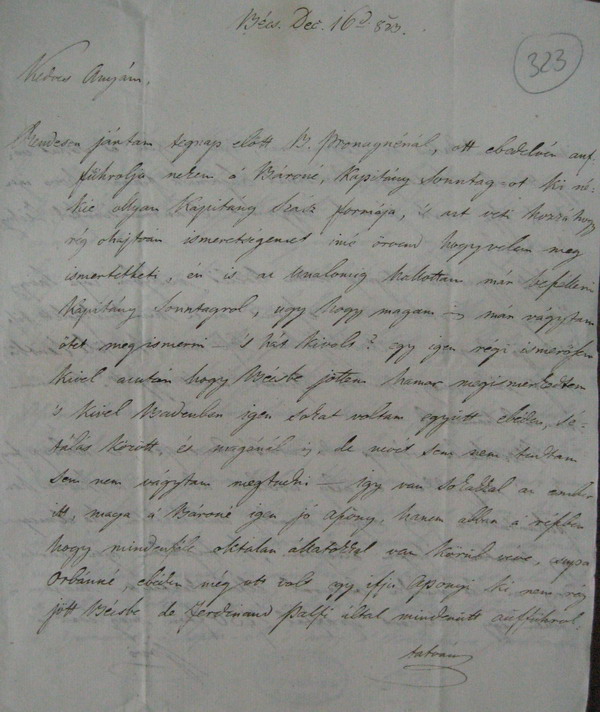 Bécs. Dec. 16ª 823.
323
Kedves Anyám.
Rendesen jártam tegnap elött B. Pronaynénál, ott ebedlvén auf-
führolja nekem á Bároné, Kapitány Sonntag-ot ki né-
kie ollyan Kapitány formája, 's azt veti hozzá hogy
rég ohajtván ismeretségemet imé örvend hogy velem meg
ismertetheti, én is az Unalomig hallottam már beszellem
Kapitány Sonntagrol, ugy hogy magam is mar vágytam
ötet megismerni – 's hát kivolt? egy igen régi ismerősöm
Kivel azután hogy Bécsbe jöttem hamar megismerkedtem
's Kivel Badenben igen sokat voltam együtt ebéden, sé-
tálás között, és magánál is, de nevét sem nem tudtam
sem nem vágytam megtudni – igy van sokakkal az ember
itt, maga á Bároné igen jó hanem abban a
hogy mindenféle oktalan állatokkal van körül véve, csupa
Orbánné, ebéden még ott volt egy ifju Aponyi ki nem rég
jött Bécsbe de Ferdinand Palfi által mindenütt aufführol.
István